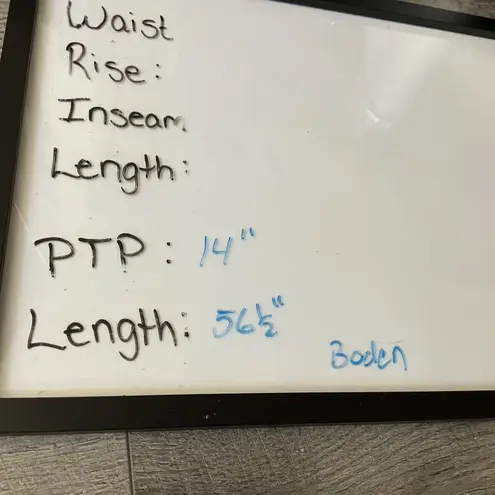 Waist
Rise:
Inseam
Length:
PTP: 14"
Length: 56½"
Boden